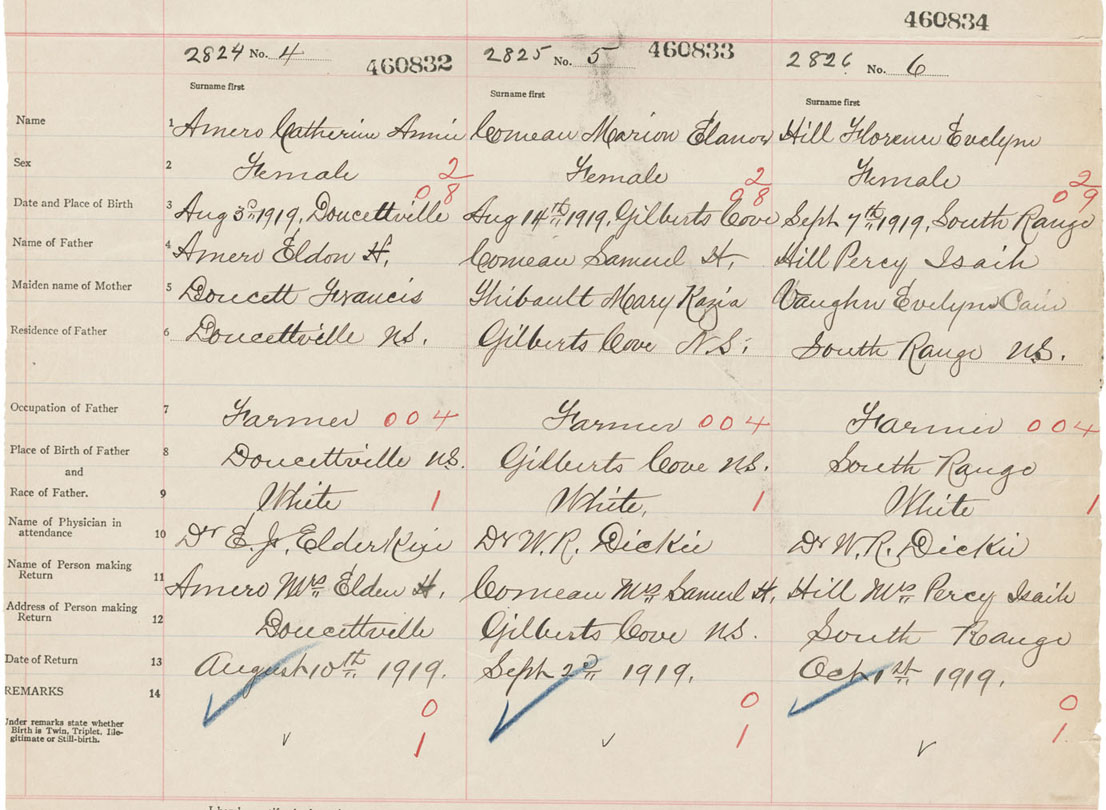 460834
2824 No. 4 460832 2825 No. 5 460833 2826 No. 6
Surname first Surname first Surname first
Name 1 Amero Catherine Annie Comeau Marion Elanor Hill Florence Evelyn
Sex 2 Female 2 Female 2 Female 2
08 08 09
Date and Place of Birth 3 Aug 3rd 1919, Doucettville Aug 14th 1919, Gilberts Cove Sept 7th 1919, South Range
Name of Father 4 Amero Eldon H, Comeau Samuel H, Hill Percy Isaih
Maiden name of Mother 5 Doucett Francis Thibault Mary Kazia Vaughn Evelyn Cain
Residence of Father 6 Doucettville NS. Gilberts Cove N.S. South Range NS.
Occupation of Father 7 Farmer 004 Farmer 004 Farmer 004
Place of Birth of Father 8 Doucettville NS. Gilberts Cove NS. South Range
and
Race of Father. 9 White 1 White, 1 White 1
Name of Physician in
attendance 10 Dr E. J. Elderkin Dr W. R. Dickie Dr W. R. Dickie
Name of Person making
Return 11 Amero Mrs Elden H. Comeau Mrs Samuel H. Hill Mrs Percy Isaih
Address of Person making
Return 12 Doucettville Gilberts Cove NS. South Range
Date of Return 13 August 10th 1919. Sept 2d 1919. Oct 1st 1919.
REMARKS 14
0 0 0
Under remarks state whether
Birth is Twin, Triplet, Ille-
gitimate or Still-birth.
1 1 1